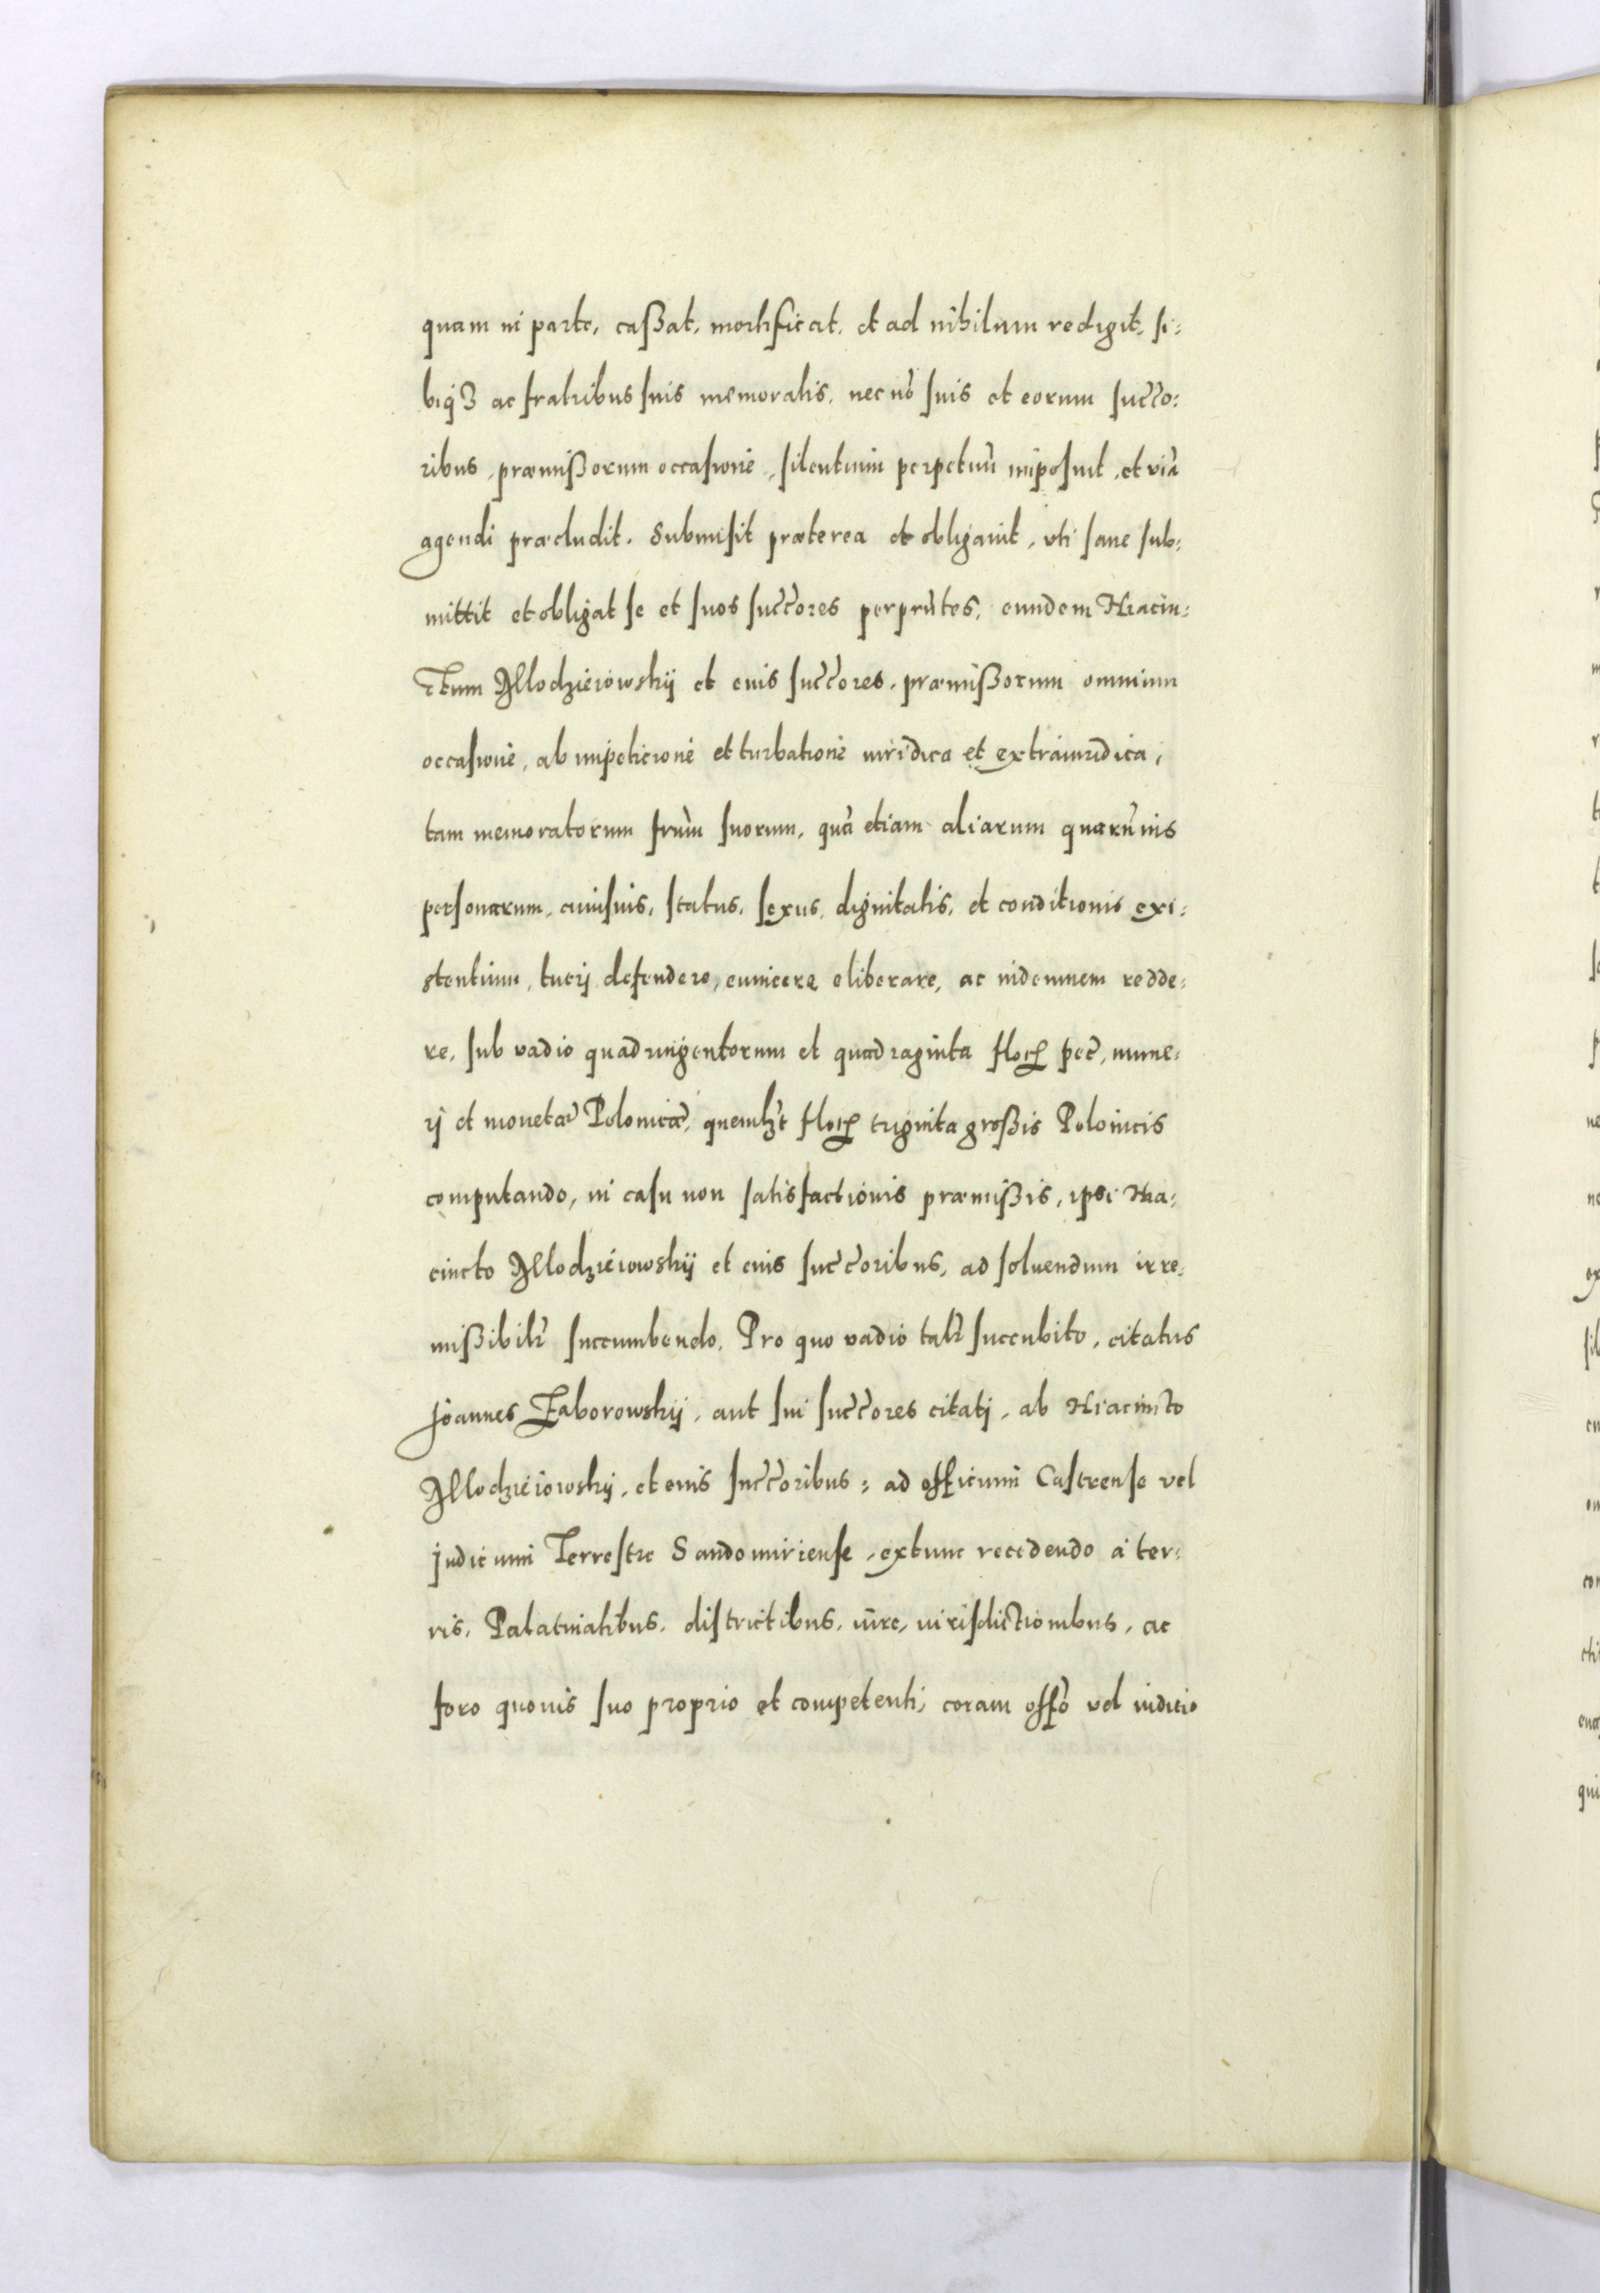 quam in parte, caßat, mortificat, et ad nihilum redigit, si:
biqȝ ac fratribus suis memoratis, nec nõ suis et eorum succõ:
ribus, præmißorum occasione, silentium perpetuũ imposuit, et viã
agendi præcludit. Submisit præterea et obligauit, vti sane sub:
mittit et obligat se et suos succõres per prñtes, eundem Hiacin:
ctum Mlodzieiowskij et eius succõres, præmißorum omnium
occasione, ab impeticione et turbatione iuridica et extraiuridica,
tam memoratorum frũm suorum, quã etiam aliarum quarũuis
personarum, cuiusuis, status, sexus, dignitatis, et conditionis exi:
stentium, tuerj defendere, euincere eliberare, ac indemnem redde:
re, sub vadio quadringentorum et quadraginta floꝝ pec̃, nume:
rj et monetæ Polonicæ, quemlꝫt floꝝ triginta großis Polonicis
computando, in casu non satisfactionis præmißis, ipsi Hia:
cincto Mlodzieiowskij et eius succõribus, ad soluendum irre:
mißibilr̃ succumbendo. Pro quo vadio talr̃ succubito, citatus
Joannes Zaborowskij, aut sui succõres citatj, ab Hiacincto
Mlodzieiowskij, et eius succõribus: ad officium Castrense vel
Judicium Terrestre Sandomiriense, extunc recedendo à ter:
ris, Palatinatibus, districtibus, iure, iurisdictionibus, ac
foro quouis suo proprio et competenti, coram offõ vel iuditio